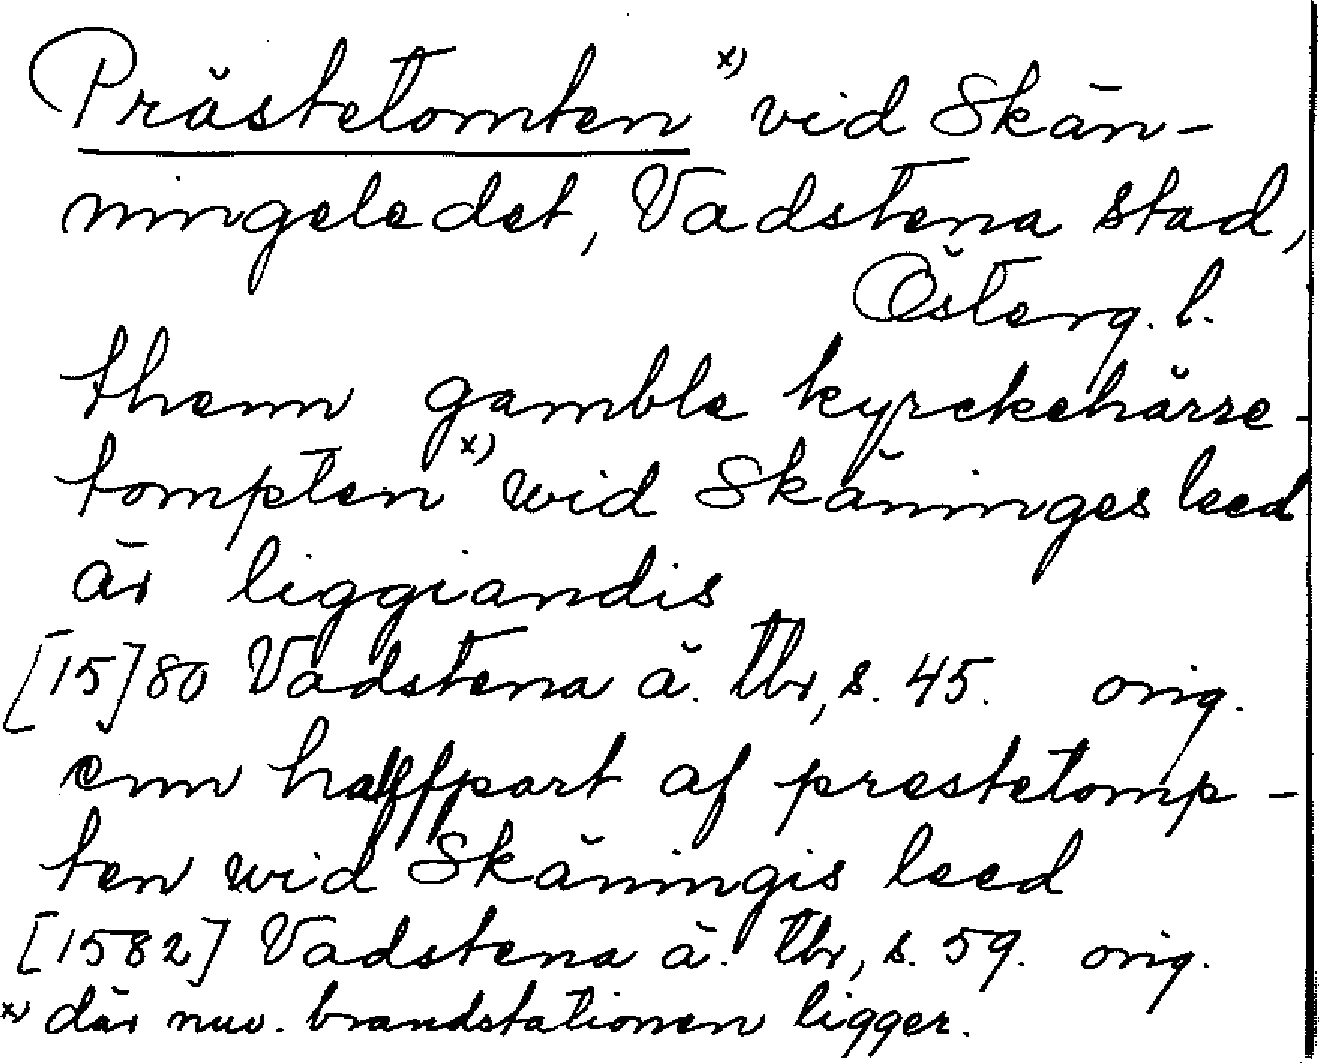 Prästetomten x) vid Skän-
ningeledet, Vadstena stad,
Österg. l.
thenn gamble kyrckehärre-
tompten x) wid Skäninges leed
är liggiandis
[15]80 Vadstena ä. tbr, s. 45. orig.
enn halffpart af prestetomp-
ten wid Skäningis leed
[1582] Vadstena ä. tbr, s. 59. orig.
x) där nuv. brandstationen ligger.